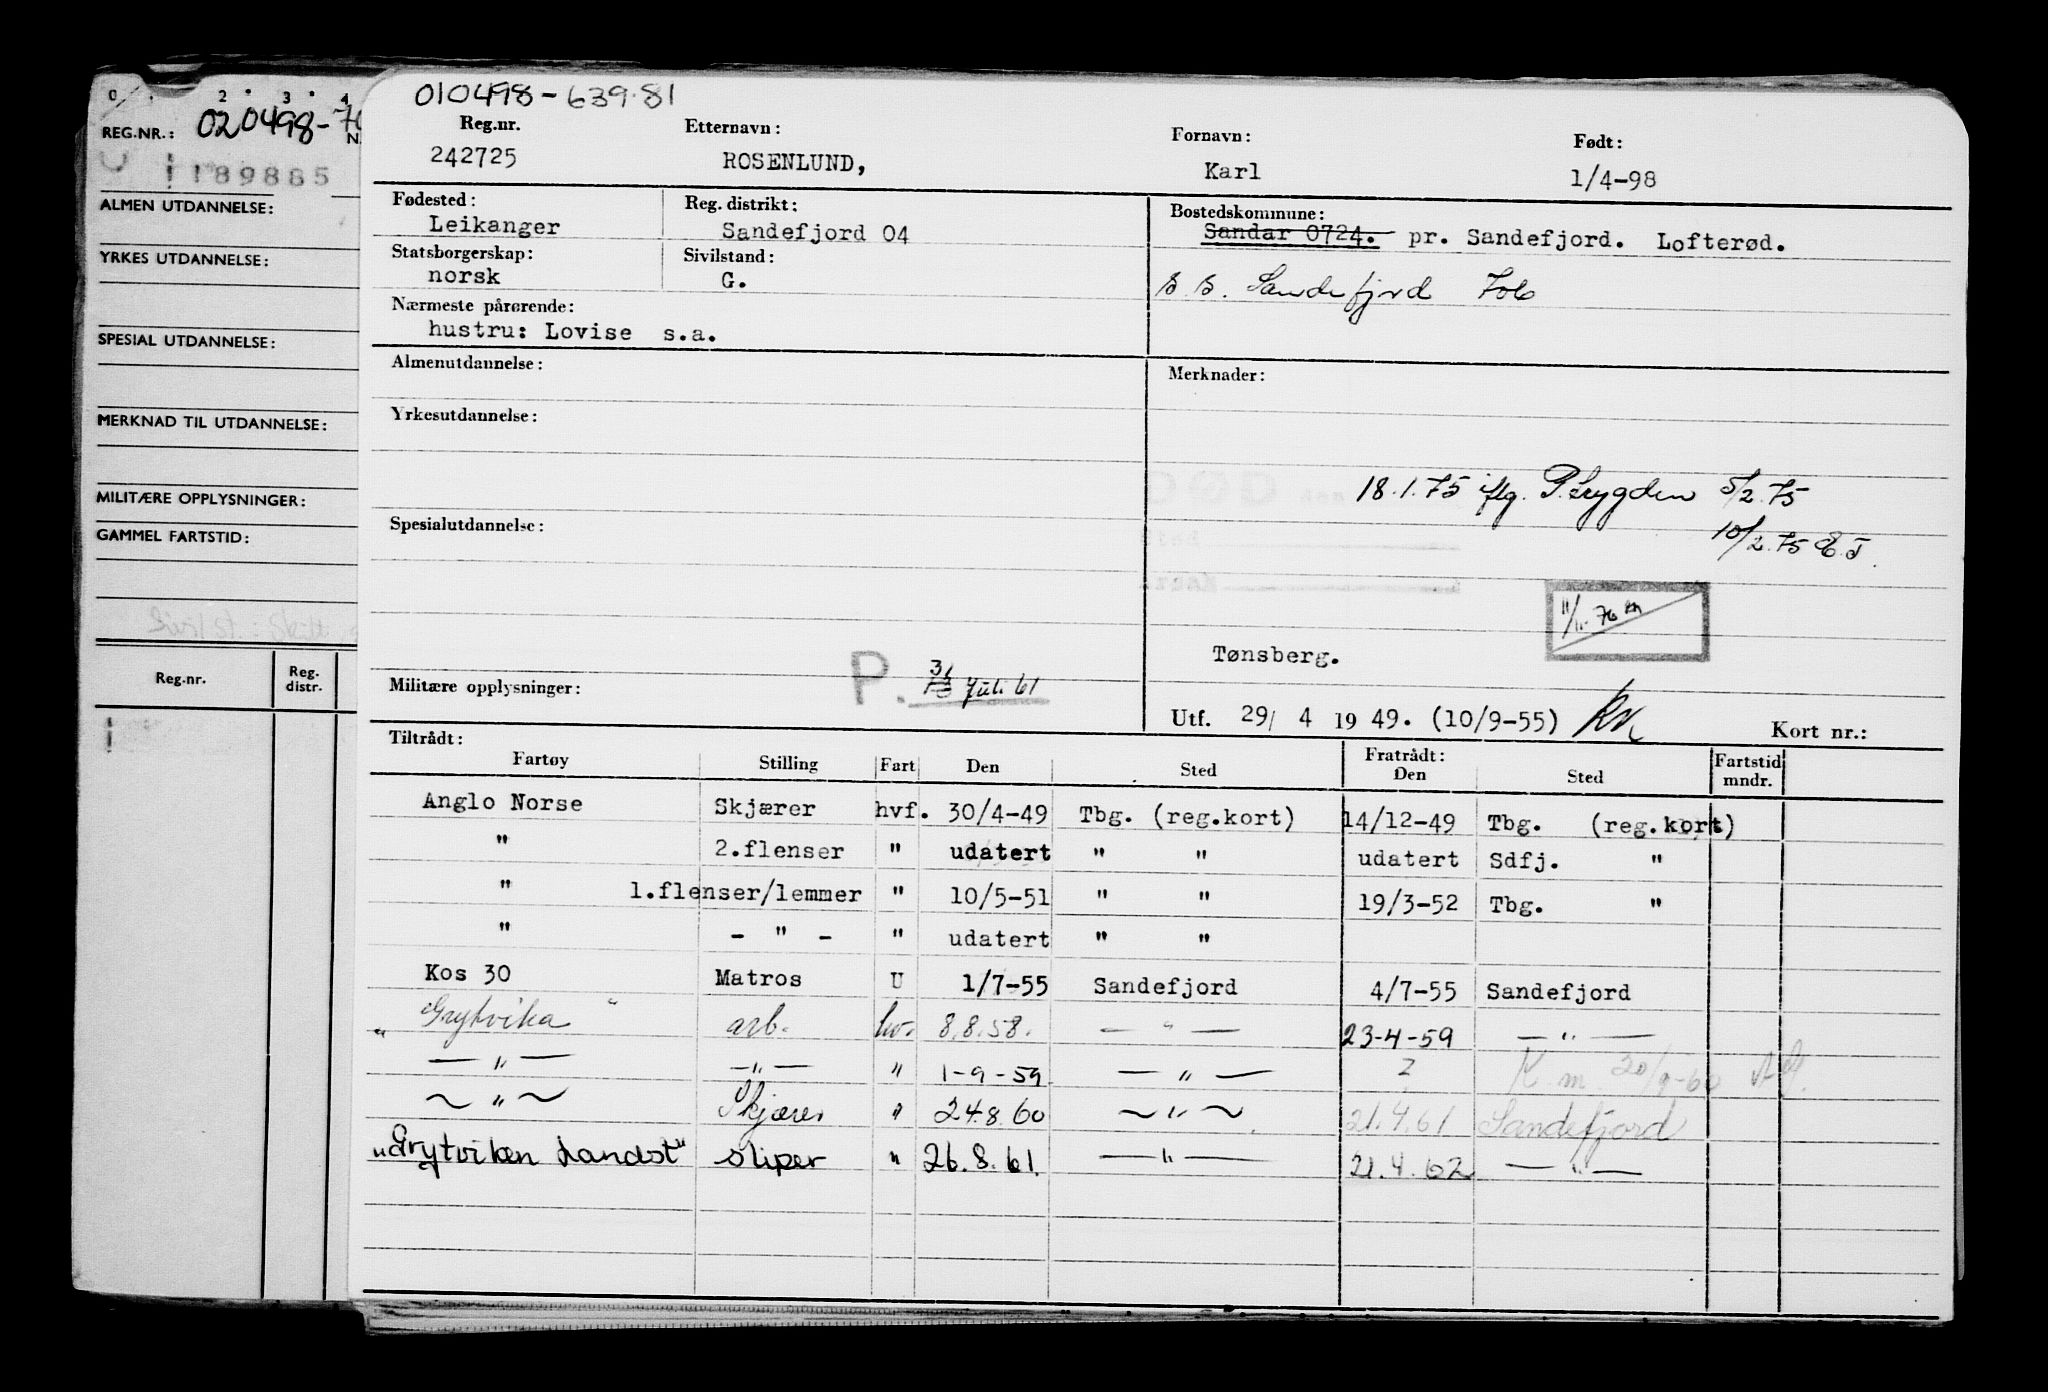 0 1 2 3 4
REG.NR.: 020498-70
189885
ALMEN UTDANNELSE:
YRKES UTDANNELSE:
SPESIAL UTDANNELSE:
MERKNAD TIL UTDANNELSE:
MILITÆRE OPPLYSNINGER:
GAMMEL FARTSTID:
Reg.nr. Reg. distr.
010498-639.81
Reg.nr. Etternavn: Fornavn: Født:
242725 ROSENLUND, Karl 1/4-98
Fødested: Reg. distrikt: Bostedskommune:
Leikanger Sandefjord 04 Sandar 0724. pr. Sandefjord. Lofterød.
Statsborgerskap: Sivilstand:
norsk G. B.B. Sandefjord 706
Nærmeste pårørende:
hustru: Lovise s.a.
Almenutdannelse: Merknader:
Yrkesutdannelse:
18.1.75 iflg. P.trygden 5/2.75
Spesialutdannelse: 10/2.75 E.J.
11/11-76
Tønsberg.
Militære opplysninger: P. Juli 61
Utf. 29/ 4 19 49. (10/9-55) Kort nr.:
Tiltrådt: Fratrådt: Fartstid
Fartøy Stilling Fart Den Sted Den Sted mndr.
Anglo Norse Skjærer hvf. 30/4-49 Tbg. (reg.kort) 14/12-49 Tbg. (reg.kort)
" 2.flenser " udatert " " udatert Sdfj. "
" 1.flenser/lemmer " 10/5-51 " " 19/3-52 Tbg. "
" - " - " udatert " "
Kos 30 Matros U 1/7-55 Sandefjord 4/7-55 Sandefjord
"Grytvika" arb. hv. 8.8.58. — " — 23-4-59 — " —
— " — — " — " 1-9-59 — " — ? K.m. 20/9-60
~ " ~ Skjærer " 24.8.60 ~ " ~ 21.4.61 Sandefjord
"Grytviken Landst" sliper " 26.8.61. — " — 21.4.62 — " —